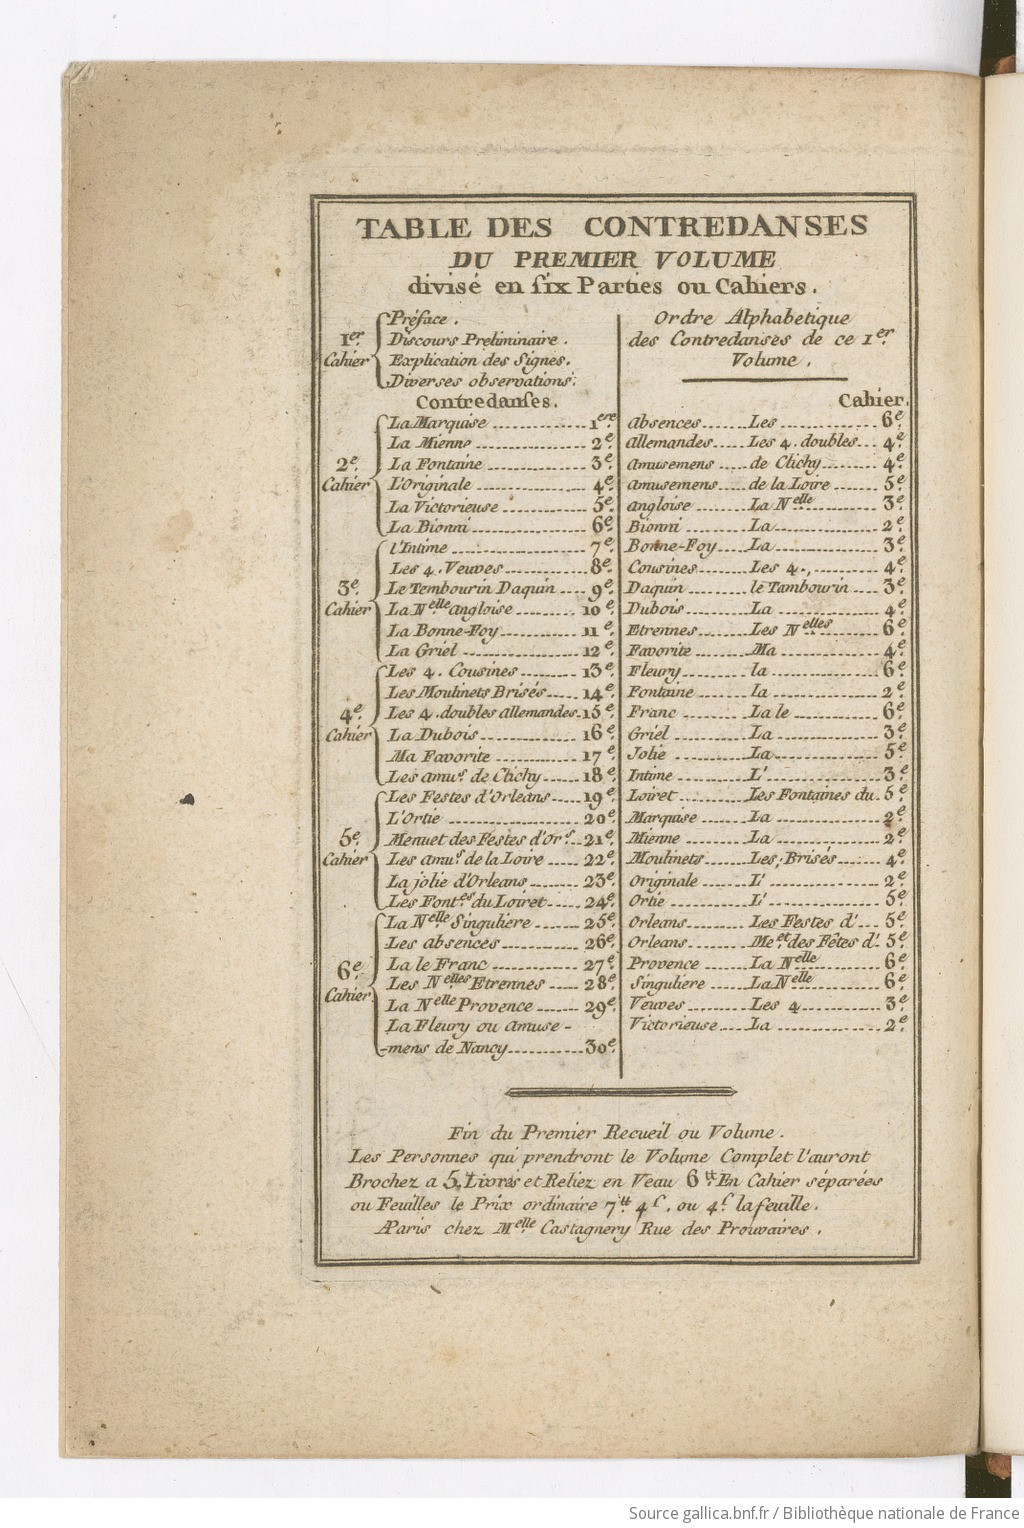 TABLE DES CONTREDANSES
DU PREMIER VOLUME
divisé en six Parties ou Cahiers.
1er. Cahier
Préface.
Discours Preliminaire.
Explication des Signes.
Diverses observations.
Contredanses.
2e. Cahier
La Marquise 1ere.
La Mienne 2e.
La Fontaine 3e.
L'Originale 4e.
La Victorieuse 5e.
La Bionni 6e.
3e. Cahier
l'Intime 7e.
Les 4. Veuves 8e.
Le Tembourin Daquin 9e.
La Nelle. angloise 10e.
La Bonne-Foy 11e.
La Griel 12e.
4e. Cahier
Les 4. Cousines 13e.
Les Moulinets Brisés 14e.
Les 4. doubles allemandes 15e.
La Dubois 16e.
Ma Favorite 17e.
Les amus. de Clichy 18e.
5e. Cahier
Les Festes d'Orleans 19e.
L'Ortie 20e.
Menuet des Festes d'Ors. 21e.
Les amus. de la Loire 22e.
La jolie d'Orleans 23e.
Les Fontes. du Loiret 24e.
6e. Cahier
La Nelle. Singuliere 25e.
Les absences 26e.
La le Franc 27e.
Les Nelles. Etrennes 28e.
La Nelle. Provence 29e.
La Fleury ou Amuse-
-mens de Nancy 30e.
Ordre Alphabetique
des Contredanses de ce 1er.
Volume.
Cahier.
absences Les 6e.
allemandes Les 4. doubles 4e.
amusemens de Clichy 4e.
amusemens de la Loire 5e.
angloise La Nelle. 3e.
Bionni La 2e.
Bonne-Foy La 3e.
Cousines Les 4. 4e.
Daquin le Tambourin 3e.
Dubois La 4e.
Etrennes Les Nelles. 6e.
Favorite Ma 4e.
Fleury la 6e.
Fontaine la 2e.
Franc La le 6e.
Griel La 3e.
Jolie La 5e.
Intime L' 3e.
Loiret Les Fontaines du 5e.
Marquise La 2e.
Mienne La 2e.
Moulinets Les Brisés 4e.
Originale L' 2e.
Ortie L' 5e.
Orleans Les Festes d' 5e.
Orleans Met. des Fêtes d' 5e.
Provence La Nelle. 6e.
Singuliere La Nelle. 6e.
Veuves Les 4 3e.
Victorieuse La 2e.
Fin du Premier Recueil ou Volume.
Les Personnes qui prendront le Volume Complet l'auront
Brochez a 5. Livres et Reliez en Veau 6tt. En Cahier séparées
ou Feuilles le Prix ordinaire 7tt. 4s. ou 4s. la feuille.
A Paris chez Melle. Castagnery Rue des Prouvaires.
Source gallica.bnf.fr / Bibliothèque nationale de France